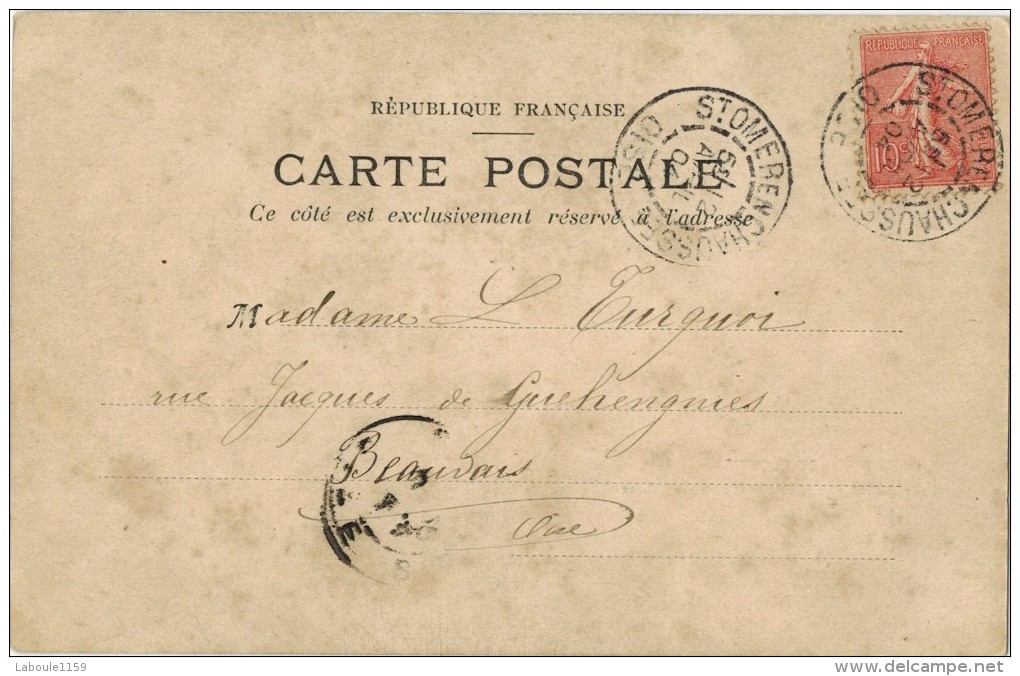 RÉPUBLIQUE FRANÇAISE
CARTE POSTALE
Ce côté est exclusivement réservé à l'adresse
REPUBLIQUE FRANÇAISE
10 c
ST OMER EN CHAUSSÉE
OISE
ST OMER EN CHAUSSÉE
OISE
Madame L Turquoi
rue Jacques de Guehengnies
Beauvais
Oise
Laboule1159
delcampe.net